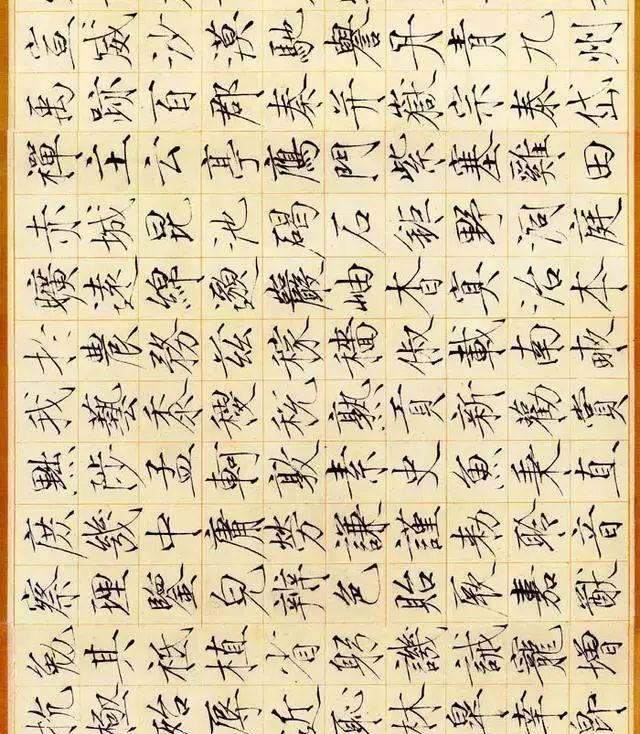 宣威沙漠馳譽丹青九州
禹跡百郡秦并嶽宗泰岱
禪主云亭鴈門紫塞雞田
赤城昆池碣石鉅野洞庭
曠遠綿邈巖岫杳冥治本
於農務茲稼穡俶載南畝
我藝黍稷稅熟貢新勸賞
黜陟孟軻敦素史魚秉直
庶幾中庸勞謙謹勑聆音
察理鑒皃辨色貽厥嘉猷
勉其祗植省躬譏誡寵增
抗極殆辱近恥林皋幸即